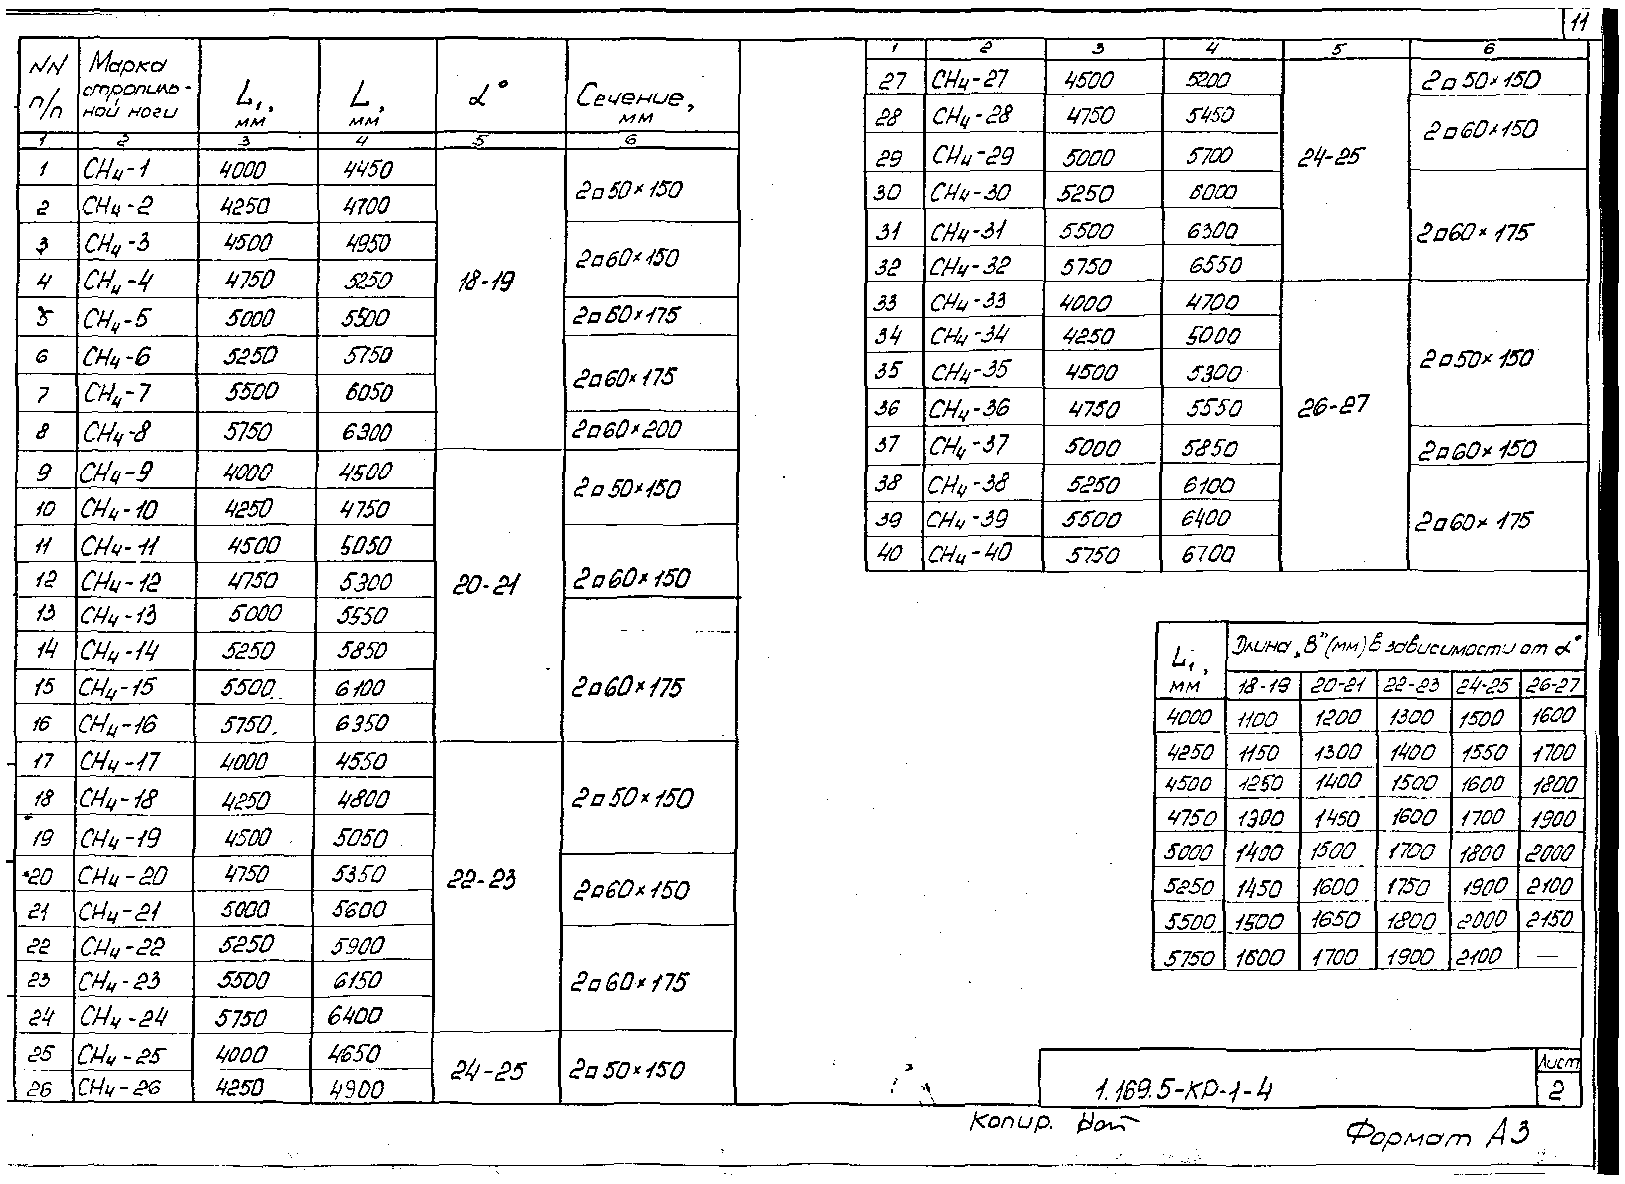 11
NN п/п | Марка стропиль-ной ноги | L₁, мм | L, мм | α° | Сечение, мм
1 | 2 | 3 | 4 | 5 | 6
1 | СН4-1 | 4000 | 4450 | 18-19 | 2□50×150
2 | СН4-2 | 4250 | 4700
3 | СН4-3 | 4500 | 4950 | 2□60×150
4 | СН4-4 | 4750 | 5250
5 | СН4-5 | 5000 | 5500 | 2□60×175
6 | СН4-6 | 5250 | 5750 | 2□60×175
7 | СН4-7 | 5500 | 6050
8 | СН4-8 | 5750 | 6300 | 2□60×200
9 | СН4-9 | 4000 | 4500 | 20-21 | 2□50×150
10 | СН4-10 | 4250 | 4750
11 | СН4-11 | 4500 | 5050 | 2□60×150
12 | СН4-12 | 4750 | 5300
13 | СН4-13 | 5000 | 5550 | 2□60×175
14 | СН4-14 | 5250 | 5850
15 | СН4-15 | 5500 | 6100
16 | СН4-16 | 5750 | 6350
17 | СН4-17 | 4000 | 4550 | 22-23 | 2□50×150
18 | СН4-18 | 4250 | 4800
19 | СН4-19 | 4500 | 5050
20 | СН4-20 | 4750 | 5350 | 2□60×150
21 | СН4-21 | 5000 | 5600
22 | СН4-22 | 5250 | 5900 | 2□60×175
23 | СН4-23 | 5500 | 6150
24 | СН4-24 | 5750 | 6400
25 | СН4-25 | 4000 | 4650 | 24-25 | 2□50×150
26 | СН4-26 | 4250 | 4900
1 | 2 | 3 | 4 | 5 | 6
27 | СН4-27 | 4500 | 5200 | 24-25 | 2□50×150
28 | СН4-28 | 4750 | 5450 | 2□60×150
29 | СН4-29 | 5000 | 5700
30 | СН4-30 | 5250 | 6000 | 2□60×175
31 | СН4-31 | 5500 | 6300
32 | СН4-32 | 5750 | 6550
33 | СН4-33 | 4000 | 4700 | 26-27 | 2□50×150
34 | СН4-34 | 4250 | 5000
35 | СН4-35 | 4500 | 5300
36 | СН4-36 | 4750 | 5550
37 | СН4-37 | 5000 | 5850 | 2□60×150
38 | СН4-38 | 5250 | 6100 | 2□60×175
39 | СН4-39 | 5500 | 6400
40 | СН4-40 | 5750 | 6700
L₁, мм | Длина „В" (мм) в зависимости от α°
18-19 | 20-21 | 22-23 | 24-25 | 26-27
4000 | 1100 | 1200 | 1300 | 1500 | 1600
4250 | 1150 | 1300 | 1400 | 1550 | 1700
4500 | 1250 | 1400 | 1500 | 1600 | 1800
4750 | 1300 | 1450 | 1600 | 1700 | 1900
5000 | 1400 | 1500 | 1700 | 1800 | 2000
5250 | 1450 | 1600 | 1750 | 1900 | 2100
5500 | 1500 | 1650 | 1800 | 2000 | 2150
5750 | 1600 | 1700 | 1900 | 2100 | —
1.169.5-КР-1-4
Лист
2
Копир.
Формат А3